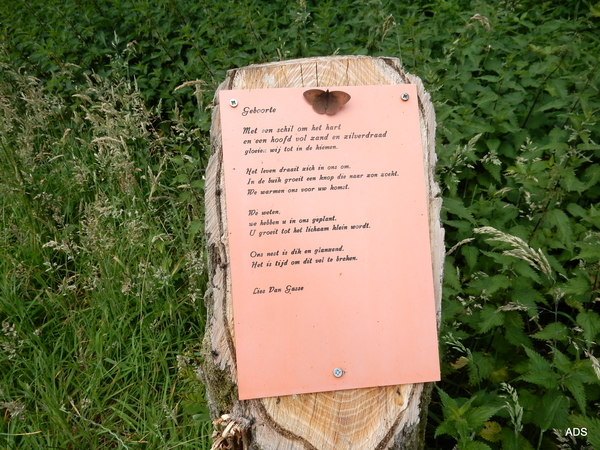 Geboorte
Met een schil om het hart
en een hoofd vol zand en zilverdraad
gloeien wij tot in de kiemen.
Het leven draait zich in ons om.
In de buik groeit een knop die naar zon zoekt.
We warmen ons voor uw komst.
We weten.
we hebben u in ons geplant.
U groeit tot het lichaam klein wordt.
Ons nest is dik en glanzend.
Het is tijd om dit vel te breken.
Lies Van Gasse
ADS